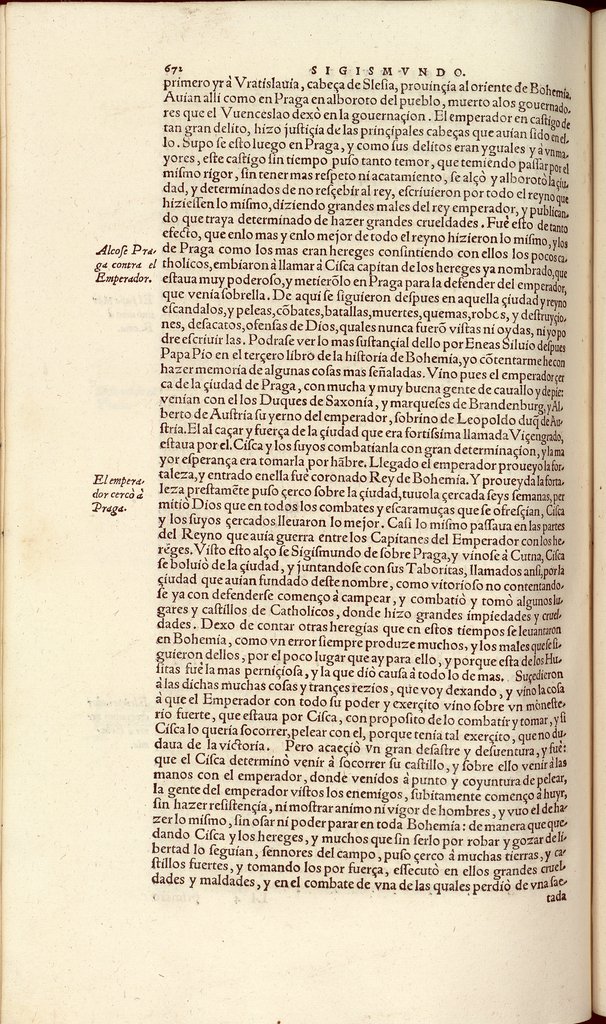 672
SIGISMVNDO.
primero yr à Vratislauia, cabeça de Slesia, prouinçia al oriente de Bohemia.
Auian alli como en Praga en alboroto del pueblo, muerto a los gouernado-
res que el Vuenceslao dexò en la gouernaçion. El emperador en castigo de
tan gran delito, hizo justiçia de las prinçipales cabeças que auian sido en el-
lo. Supo se esto luego en Praga, y como sus delitos eran yguales y à vn ma-
yores, este castigo sin tiempo puso tanto temor, que temiendo passar por el
mismo rigor, sin tener mas respeto ni acatamiento, se alçò y alborotò la çiu-
dad, y determinados de no resçebir al rey, escriuieron por todo el reyno que
hiziessen lo mismo, diziendo grandes males del rey emperador, y publican-
do que traya determinado de hazer grandes crueldades. Fuè esto de tanto
efecto, que en lo mas y en lo mejor de todo el reyno hizieron lo mismo, y los
de Praga como los mas eran hereges consintiendo con ellos los pocos ca-
tholicos, embiaron à llamar à Cisca capitan de los hereges ya nombrado, que
estaua muy poderoso, y metierõlo en Praga para la defender del emperador,
que venia sobrella. De aqui se siguieron despues en aquella çiudad y reyno
escandalos, y peleas, cõbates, batallas, muertes, quemas, robos, y destruyçio-
nes, desacatos, ofensas de Dios, quales nunca fuerõ vistas ni oydas, ni yo po
dre escriuir las. Podrase ver lo mas sustançial dello por Eneas Siluio despues
Papa Pio en el terçero libro de la historia de Bohemia, yo cõtentarme he con
hazer memoria de algunas cosas mas señaladas. Vino pues el emperador çer
ca de la çiudad de Praga, con mucha y muy buena gente de cauallo y de pie:
venian con el los Duques de Saxonia, y marqueses de Brandenburg, y Al-
berto de Austria su yerno del emperador, sobrino de Leopoldo duq̃ de Au-
stria. El alcaçar y fuerça de la çiudad que era fortissima llamada Viçengrado,
estaua por el. Cisca y los suyos combatianla con gran determinaçion, y la ma
yor esperança era tomarla por hãbre. Llegado el emperador proueyo la for-
taleza, y entrado en ella fuè coronado Rey de Bohemia. Y proueyda la forta-
leza prestamẽte puso çerco sobre la çiudad, tuuola çercada seys semanas, per
mitiò Dios que en todos los combates y escaramuças que se ofresçian, Cisca
y los suyos çercados lleuaron lo mejor. Casi lo mismo passaua en las partes
del Reyno que auia guerra entre los Capitanes del Emperador con los he-
reges. Visto esto alço se Sigismundo de sobre Praga, y vinose à Cutna, Cisca
se boluiò de la çiudad, y juntandose con sus Taboritas, llamados ansi, por la
çiudad que auian fundado deste nombre, como vitorioso no contentando-
se ya con defenderse començo à campear, y combatiò y tomò algunos lu-
gares y castillos de Catholicos, donde hizo grandes impiedades y cruel-
dades. Dexo de contar otras heregias que en estos tiempos se leuantaron
en Bohemia, como vn error siempre produze muchos, y los males que se si-
guieron dellos, por el poco lugar que ay para ello, y porque esta de los Hu-
sitas fuè la mas perniçiosa, y la que diò causa à todo lo de mas. Suçedieron
à las dichas muchas cosas y trançes rezios, que voy dexando, y vino la cosa
à que el Emperador con todo su poder y exerçito vino sobre vn moneste-
rio fuerte, que estaua por Cisca, con proposito de lo combatir y tomar, y si
Cisca lo queria socorrer, pelear con el, porque tenia tal exerçito, que no du-
daua de la victoria. Pero acaeçiò vn gran desastre y desuentura, y fuè:
que el Cisca determinò venir à socorrer su castillo, y sobre ello venir à las
manos con el emperador, donde venidos à punto y coyuntura de pelear,
la gente del emperador vistos los enemigos, subitamente començo à huyr,
sin hazer resistençia, ni mostrar animo ni vigor de hombres, y vuo el de ha-
zer lo mismo, sin osar ni poder parar en toda Bohemia: de manera que que-
dando Cisca y los hereges, y muchos que sin serlo por robar y gozar de li-
bertad lo seguian, sennores del campo, puso çerco à muchas tierras, y ca-
stillos fuertes, y tomando los por fuerça, essecutò en ellos grandes cruel-
dades y maldades, y en el combate de vna de las quales perdiò de vna sae-
tada
Alcose Pra-
ga contra el
Emperador.
El empera-
dor cercò à
Praga.